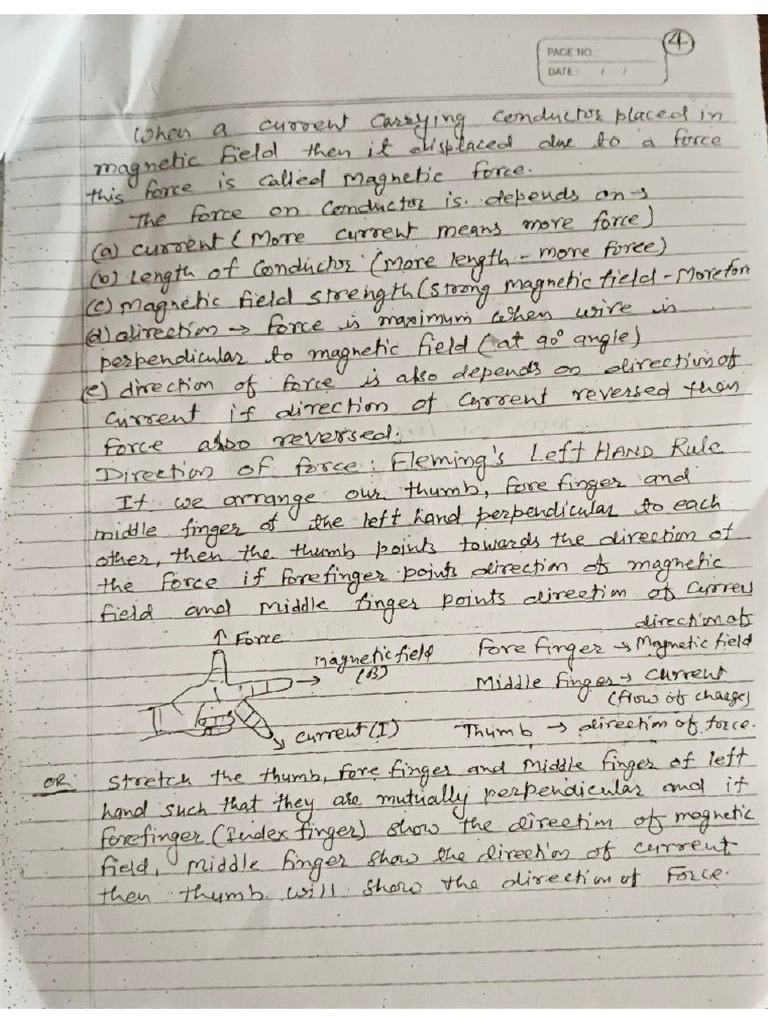 PAGE NO.
4
DATE: / /
When a current carrying conductor placed in
magnetic field then it displaced due to a force
this force is called magnetic force.
The force on conductor is. depends on →
(a) current (More current means more force)
(b) Length of conductor (More length - more force)
(c) magnetic field strength (strong magnetic field - More for
(d) direction → force is maximum when wire is
perpendicular to magnetic field (at 90° angle)
(e) direction of force is also depends on direction of
current if direction of current reversed then
force also reversed.
Direction of force: Fleming's Left HAND Rule
If we arrange our thumb, fore finger and
middle finger of the left hand perpendicular to each
other, then the thumb points towards the direction of
the force if forefinger points direction of magnetic
field and middle finger points direction of curren
↑ Force
direction of
magnetic field
(B)
Fore finger → Magnetic field
Middle finger → current
(flow of charge)
current (I)
Thumb → direction of force.
OR
Stretch the thumb, fore finger and middle finger of left
hand such that they are mutually perpendicular and if
forefinger (Index finger) show the direction of magnetic
field, middle finger show the direction of current
then thumb will show the direction of Force.